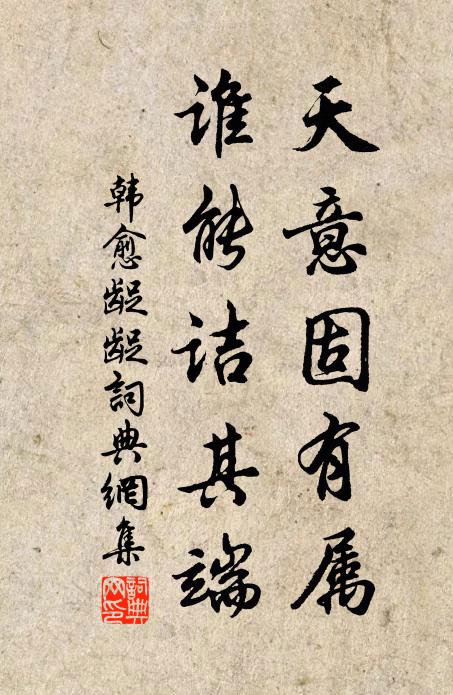 天意固有属
谁能诘其端
韩愈龊龊詞典網集
詞典网印